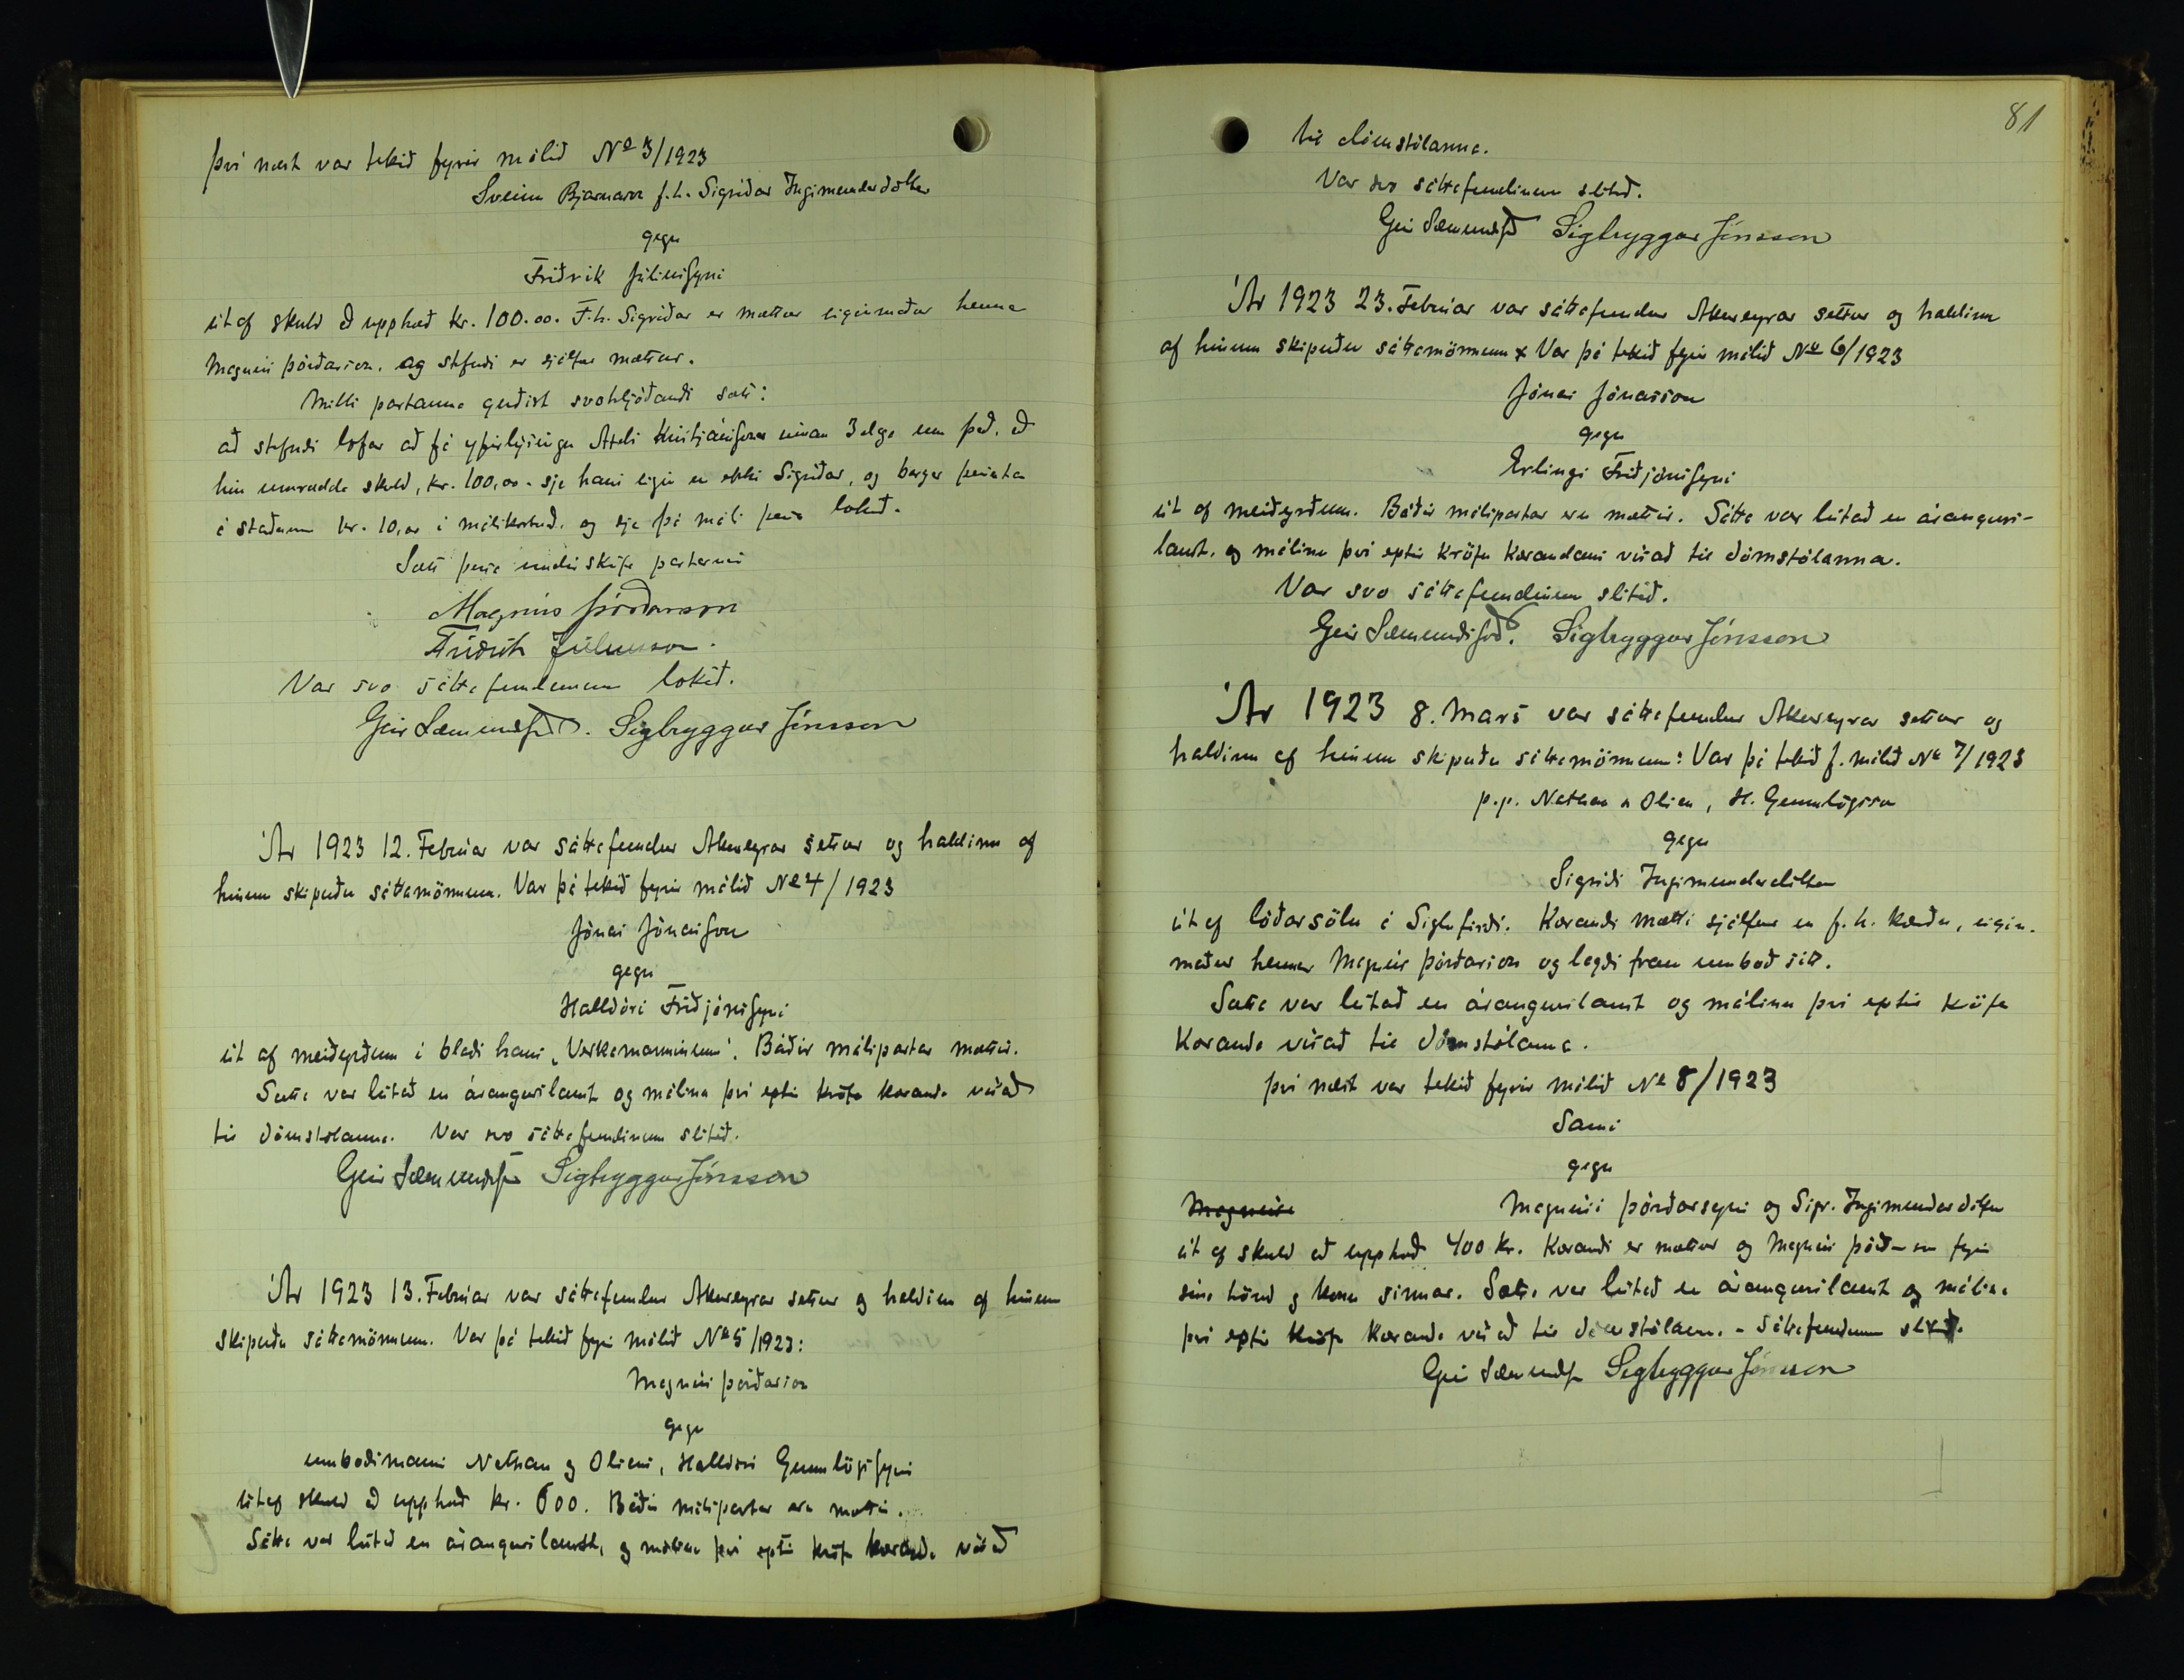 því næst var tekið fyrir málið No 3/1923
Sveinn Bjarnason f.h. Sigríðar Ingimundardóttur
gegn
Friðrik Júlíussyni
út af skuld að upphæð kr. 100.00. F.h. Sigríðar er mættur eiginmaður hennar
Magnús Þórðarson, og stefndi er sjálfur mættur.
Milli partanna gerðist svohljóðandi sátt:
að stefndi lofar að fá yfirlýsingu Kristjánssonar innan 3 daga um það, að
hin umrædda skuld, kr. 100,00 - sje hans eigin en ekki Sigríðar, og borgar
á staðnum kr. 10,00 í málskostnað, og sje þá máli þessu lokið.
Sátt þessa undirskrifa partarnir
Magnús Þórðarson
Friðrik Júlíusson.
Var svo sáttafundinum lokið.
Geir Sæmundss. Sigtryggur Jónsson
Ár 1923 12. Febrúar var sáttafundur Akureyrar settur og haldinn af
hinum skipuðu sáttamönnum. Var þá tekið fyrir málið No 4/1923
Jónas Jónasson
gegn
Halldóri Friðjónssyni
út af meiðyrðum í blaði hans „Verkamanninum“. Báðir málspartar mættir.
Sátta var leitað en árangurslaust og málinu því eptir kröfu kæranda vísað
til dómstólanna. Var svo sáttafundinum slitið.
Geir Sæmundss Sigtryggur Jónsson
Ár 1923 13. Febrúar var sáttafundur Akureyrar settur og haldinn af hinum
skipuðu sáttamönnum. Var þá tekið fyrir málið No 5/1923:
Magnús Þórðarson
gegn
umboðsmanni Nathan og Olsens, Halldóri Gunnlögssyni
út af skuld að upphæð kr. 600. Báðir málspartar eru mættir.
Sátta var leitað en árangurslaust, og málinu því eptir kröfu kæranda vísað
81
til dómstólanna.
Var svo sáttafundinum slitið.
Geir Sæmundss Sigtryggur Jónsson
Ár 1923 23. Febrúar var sáttafundur Akureyrar settur og haldinn
af hinum skipuðu sáttamönnum. Var þá tekið fyrir málið No 6/1923
Jónas Jónasson
gegn
Erlingi Friðjónssyni
út af meiðyrðum. Báðir málspartar eru mættir. Sátta var leitað en árangurs-
laust, og málinu því eptir kröfu kærandans vísað til dómstólanna.
Var svo sáttafundinum slitið.
Geir Sæmundsson. Sigtryggur Jónsson
Ár 1923 8. Mars var sáttafundur Akureyrar settur og
haldinn af hinum skipuðu sáttamönnum: Var þá tekið f. málið No 7/1923
p.p. Nathan & Olsen, H. Gunnlögsson
gegn
Sigríði Ingimundardóttur
út af lóðarsölu á Siglufirði. Kærandi mætti sjálfur en f.h. kærðu, eigin-
maður hennar Magnús Þórðarson og lagði fram umboð sitt.
Sátta var leitað en árangurslaust og málinu því eptir kröfu
Kæranda vísað til dómstólanna.
því næst var tekið fyrir málið No 8/1923
Sami
gegn
Magnúsi Magnúsi Þórðarsyni og Sigr. Ingimundardóttur
út af skuld að upphæð 400 kr. Kærandi er mættur og Magnús Þórðarson fyrir
sína hönd og konu sinnar. Sátta var leitað en árangurslaust og málinu
því eptir kröfu Kæranda vísað til dómstólanna. - Sáttafundinum slitið.
Geir Sæmundss Sigtryggur Jónsson